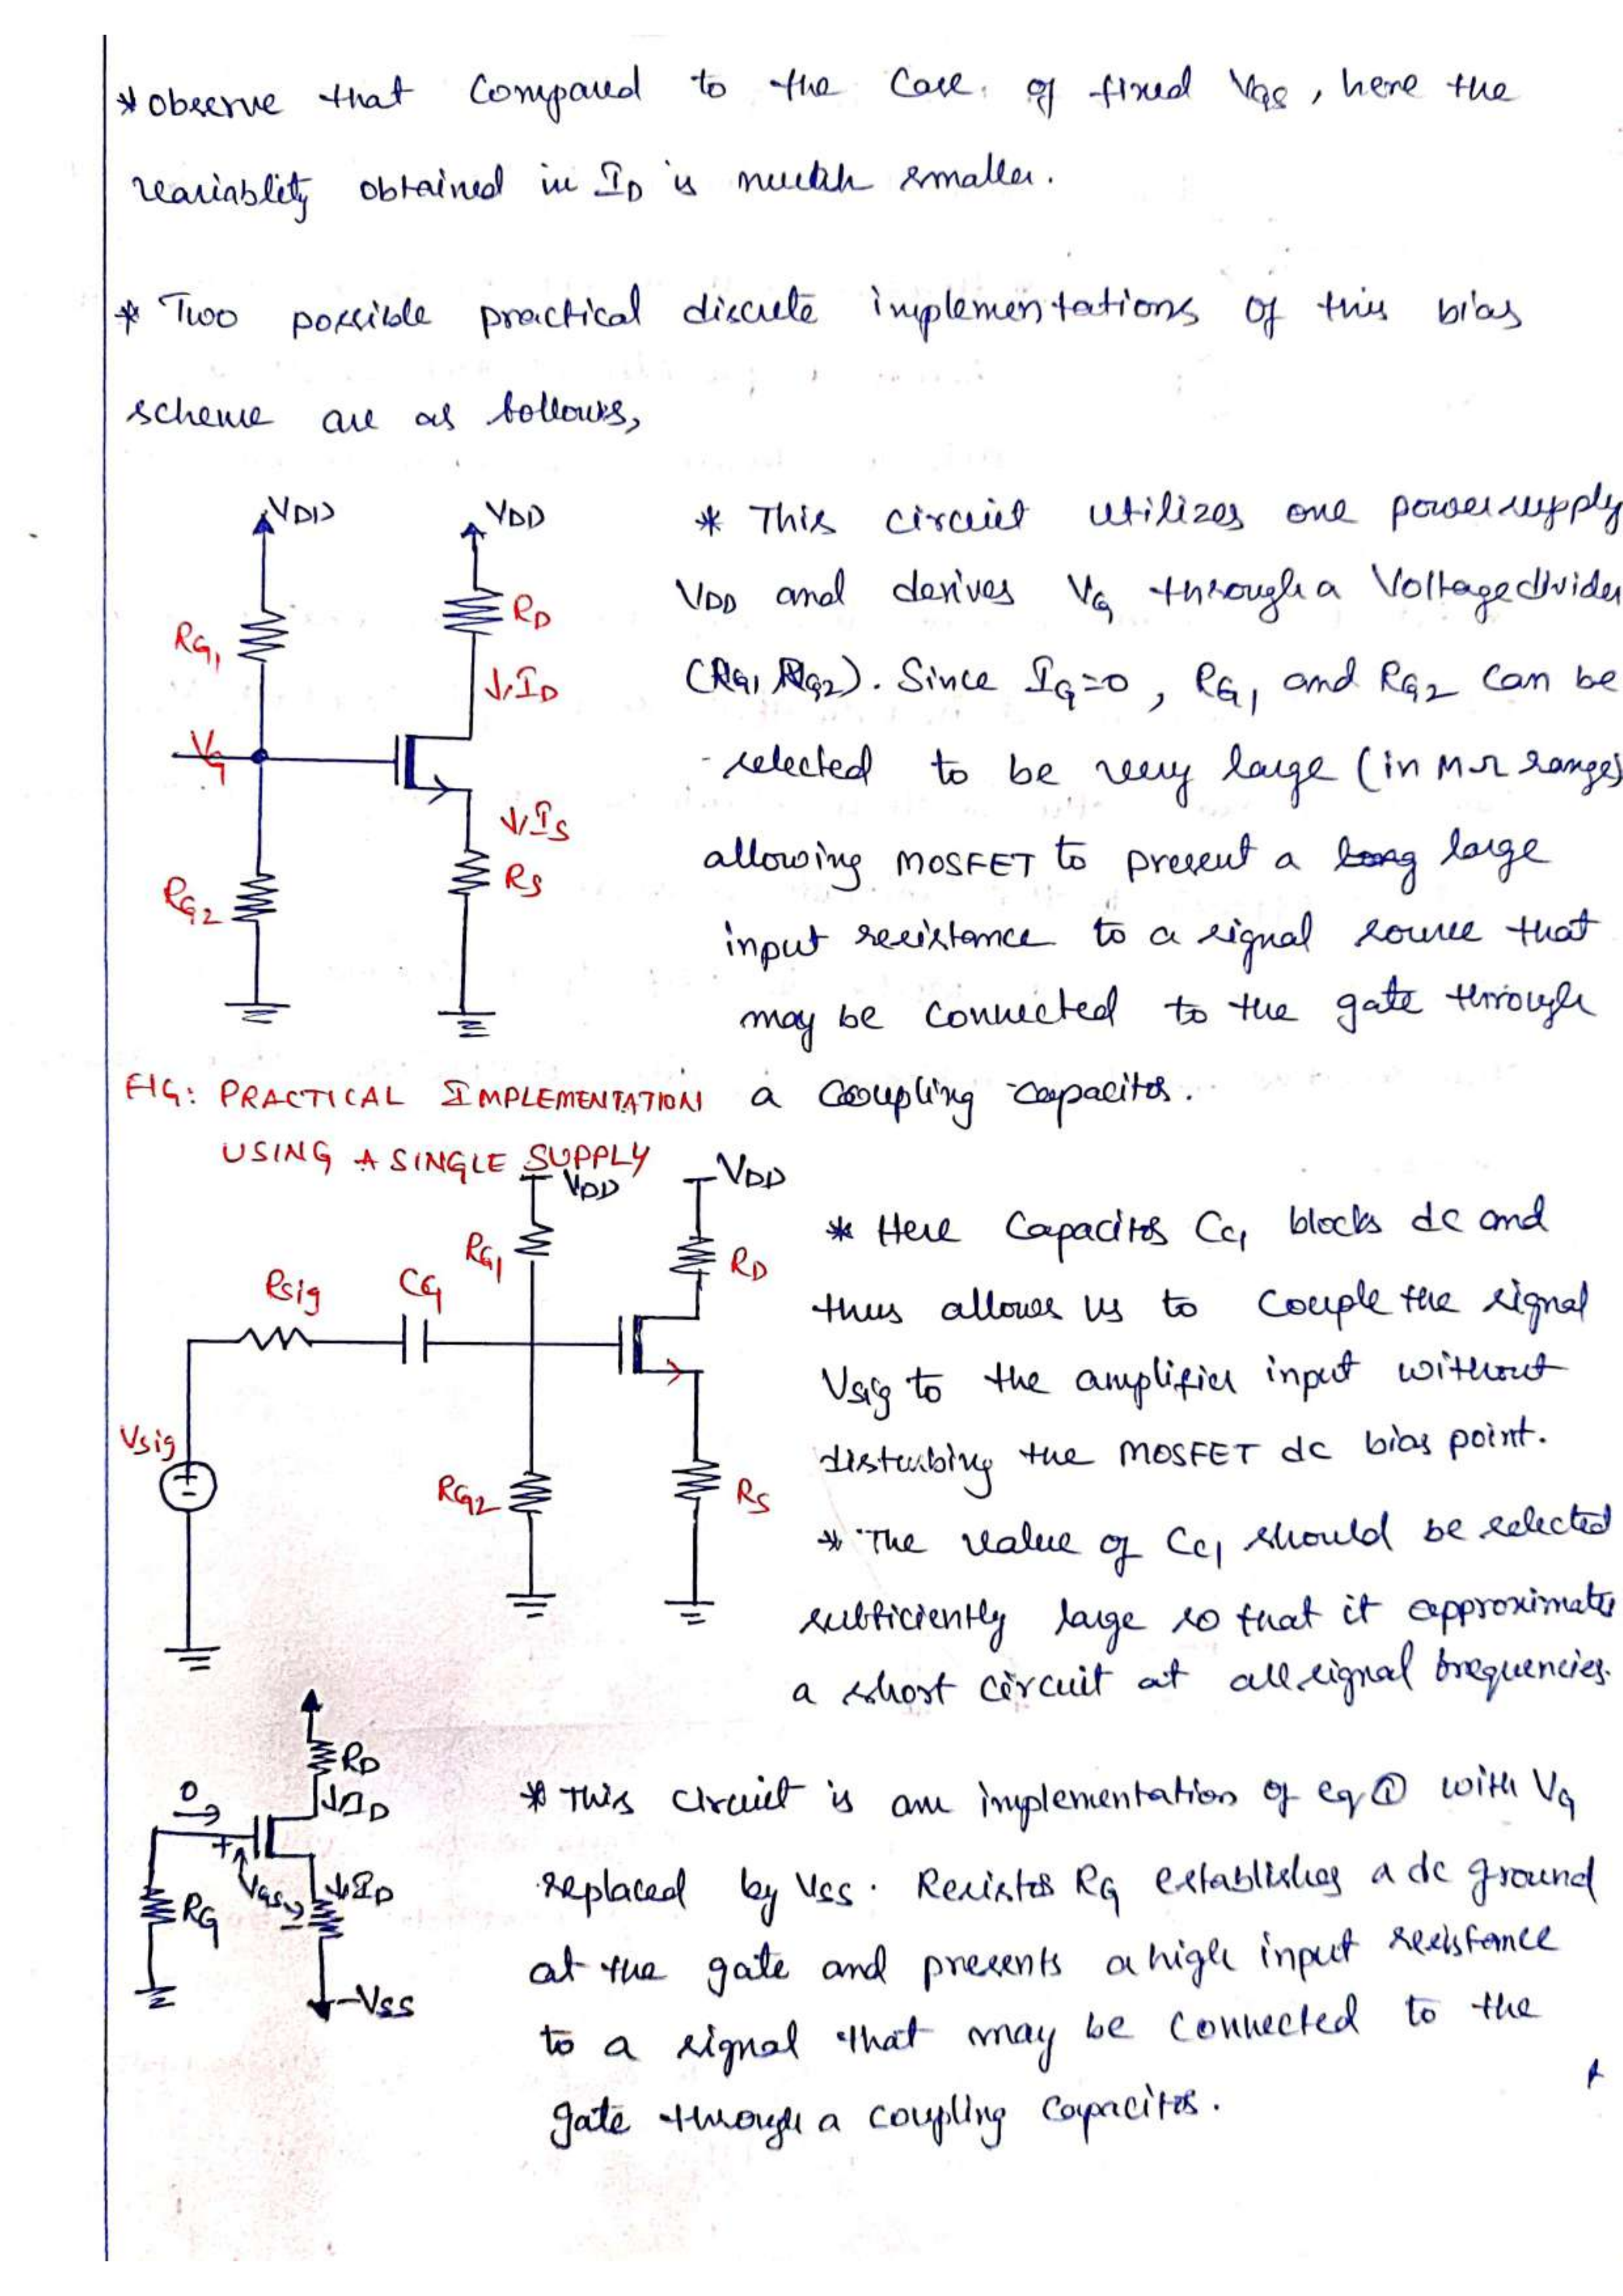 * observe that compared to the case of fixed VGS, here the
variablity obtained in ID is much smaller.
* Two possible practical discrete implementations of this bias
scheme are as follows,
VDD
VDD
RD
RG1
↓ID
VG
↓IS
RS
RG2
* This circuit utilizes one power supply
VDD and derives VG through a Voltage divider
(RG1, RG2). Since IG=0, RG1 and RG2 can be
selected to be very large (in MΩ range)
allowing MOSFET to present a large
input resistance to a signal source that
may be connected to the gate through
a coupling capacitor.
FIG: PRACTICAL IMPLEMENTATION
USING A SINGLE SUPPLY
VDD
VDD
RG1
RD
Rsig
CC1
Vsig
RG2
RS
* Here Capacitor CC1 blocks dc and
thus allows us to couple the signal
Vsig to the amplifier input without
disturbing the MOSFET dc bias point.
* The value of CC1 should be selected
sufficiently large so that it approximates
a short circuit at all signal frequencies.
RD
0
↓ID
+
VGS
-
↓ID
RG
-VSS
* This circuit is an implementation of eq ① with VG
replaced by VSS. Resistor RG establishes a dc ground
at the gate and presents a high input resistance
to a signal that may be connected to the
gate through a coupling capacitor.